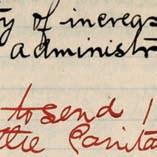 ty of increas
administr
to send 1
ttie Canita